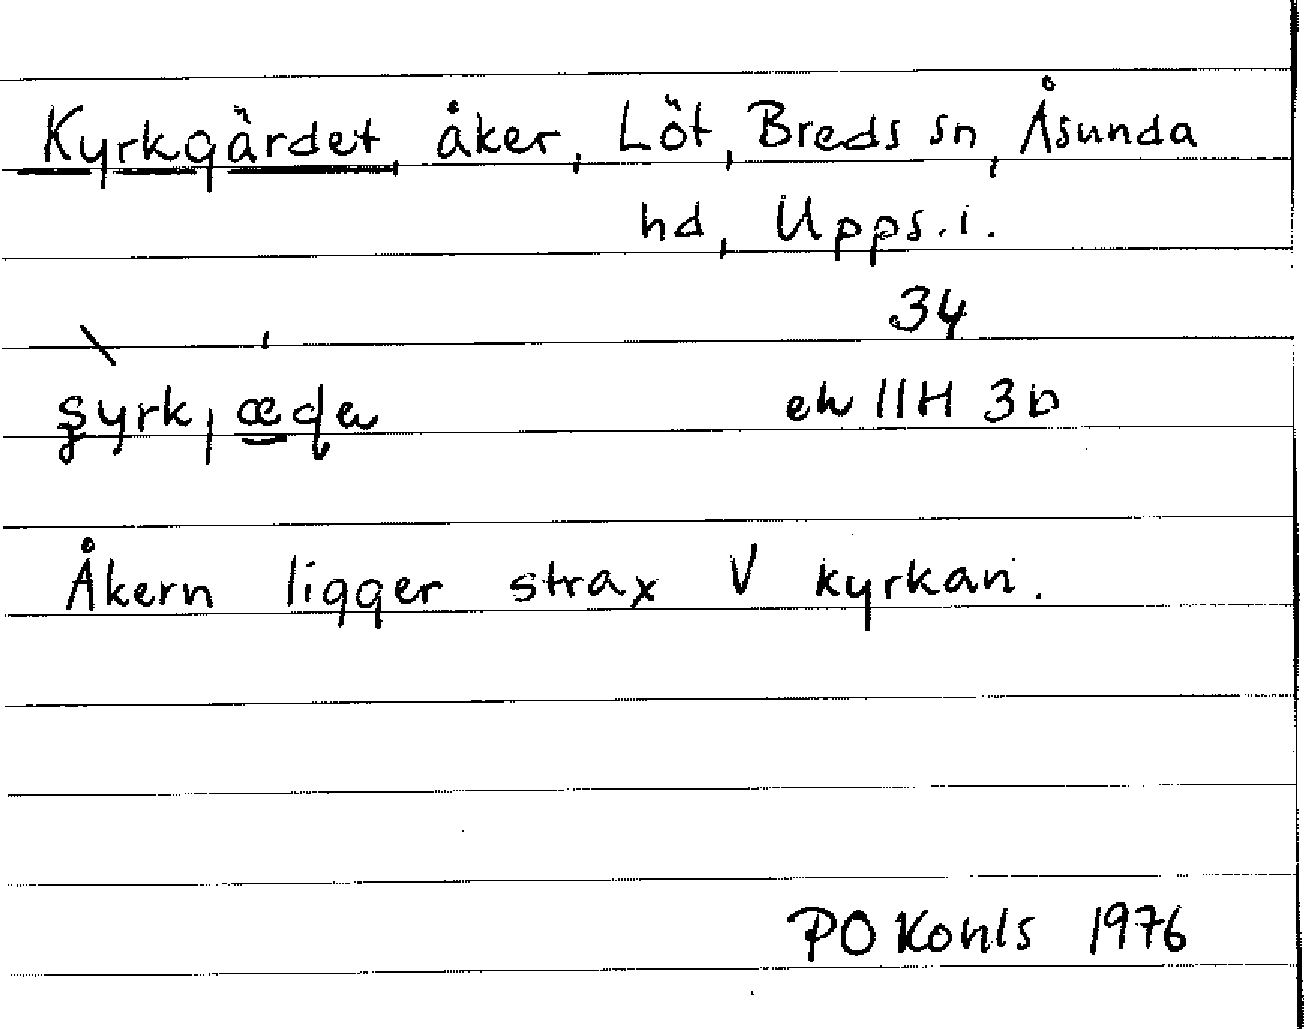 Kyrkgärdet, åker, Löt, Breds sn, Åsunda
hd, Upps. l.
34
ek 11H 3b
Åkern ligger strax V kyrkan.
PO Kohls 1976